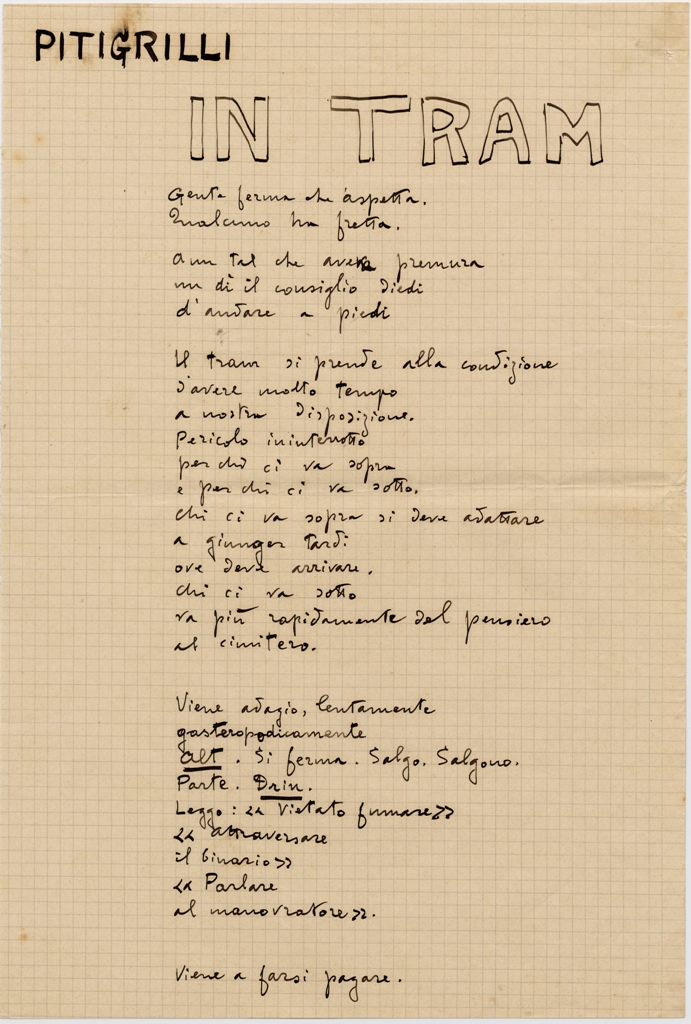 PITIGRILLI
IN TRAM
Gente ferma che aspetta.
Qualcuno ha fretta.
A un tal che aveva premura
un dì il consiglio diedi
d'andare a piedi
Il tram si prende alla condizione
d'avere molto tempo
a nostra disposizione.
Pericolo ininterrotto
per chi ci va sopra
e per chi ci va sotto.
Chi ci va sopra si deve adattare
a giunger tardi
ove deve arrivare.
Chi ci va sotto
va più rapidamente del pensiero
al cimitero.
Viene adagio, lentamente
gasteropodicamente
Alt. Si ferma. Salgo. Salgono.
Parte. Drin.
Leggo: << Vietato fumare>>
<< attraversare
il binario>>
<< Parlare
al manovratore>>.
Viene a farsi pagare.